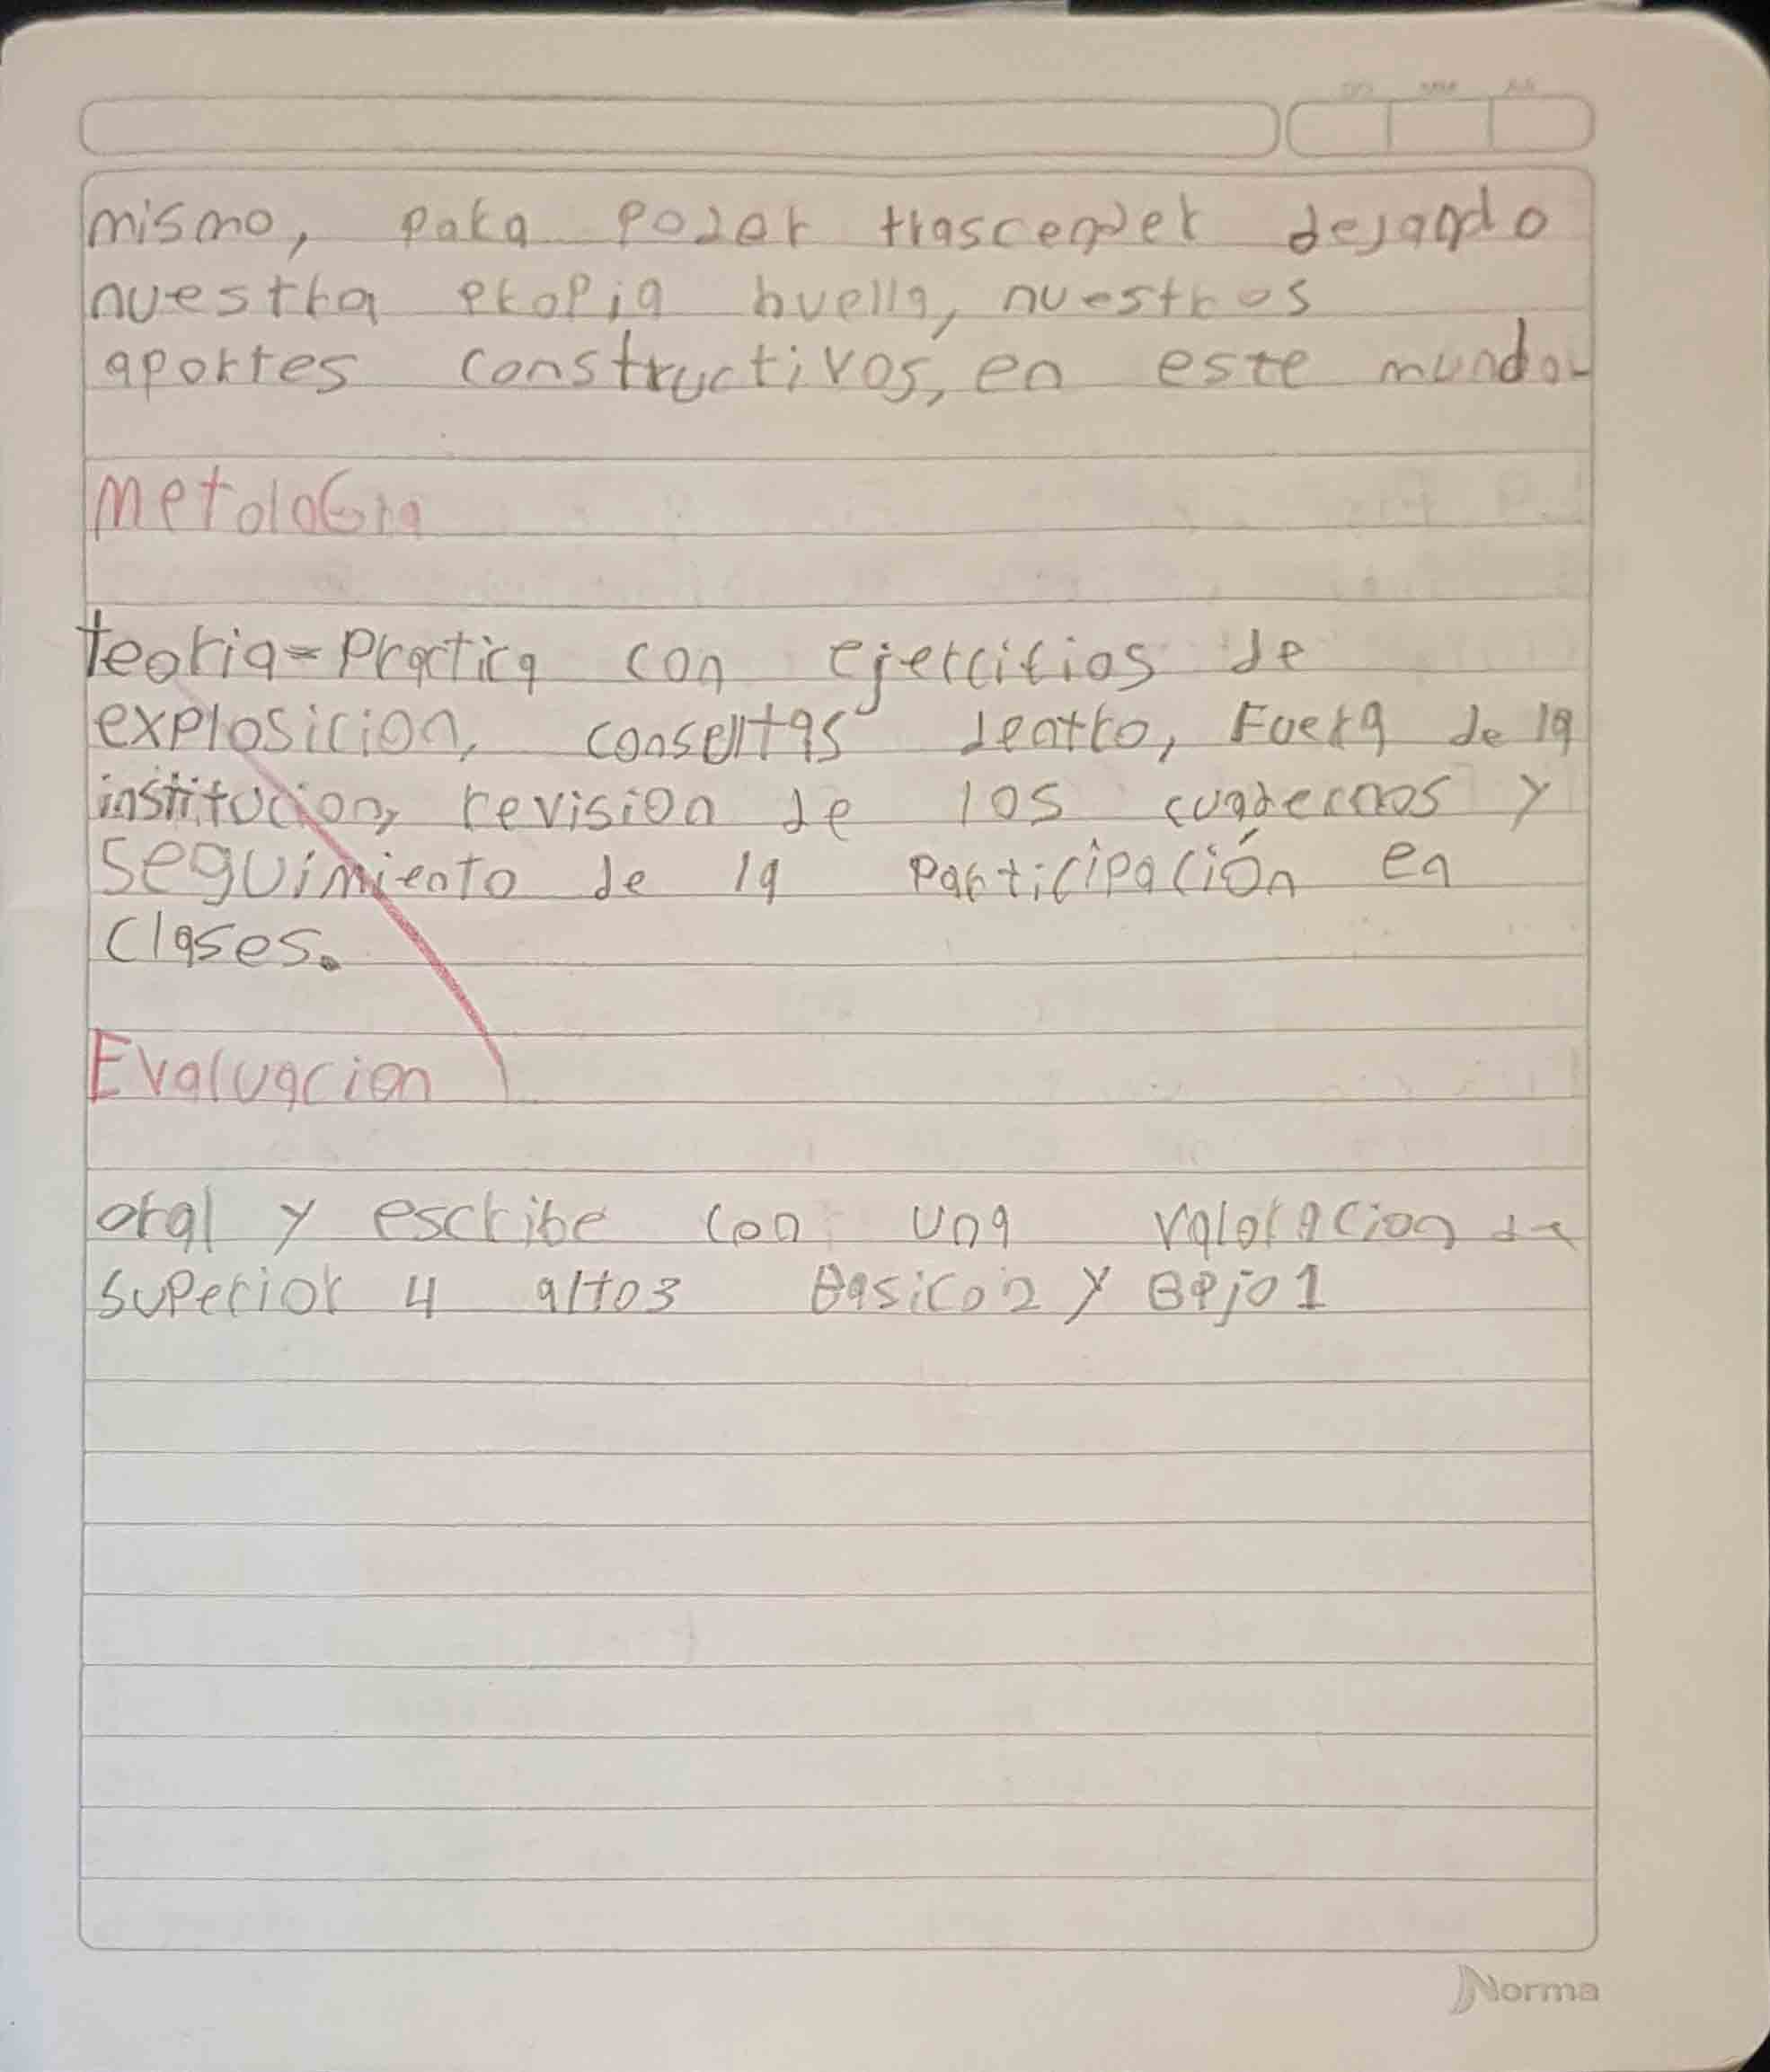 mismo, para poder trascender dejando
nuestra propia huella, nuestros
aportes constructivos, en este mundo-
metologia
teoria=Practica con ejercicios de
explosicion, consultas dentro, Fuera de la
institucion, revision de los cuadernos y
seguimiento de la Participación en
clases.
Evaluacion
oral y escribe con una valoracion de
superior 4 alto3 Basico2 y Bajo1
Norma